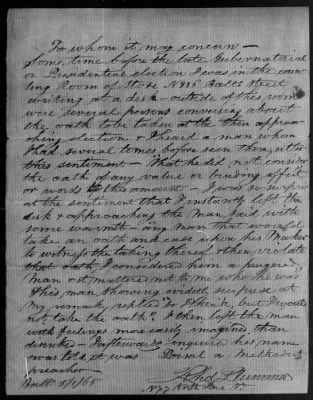 To whom it may concern —
Some time before the late Gubernatorial
or Presidential election I was in the coun
ting Room of Store No Balto Street
writing at a desk — outside of the room
were several persons conversing about
the oath to be taken at the then approa-
ching election & I heard a man whom
I had several times before seen there, utter
this sentiment — That he did not consider
the oath of any value or binding effect
or words to this amount — I was so surprised
at the sentiment that I instantly left the
desk & approaching the man said with
some warmth — any man that would
take an oath and call upon his Maker
to witness the taking thereof & then violate
that oath, I considered him a perjured
man & it mattered not to me who he was
This man showing evident surprise at
my remark replied "I think, but I would
not take the oath". I then left the man
with feelings more easily imagined than
described — I afterwards enquired his name
was told it was Poisal a Methodist
preacher
Balto 5/1/65
No 77 North